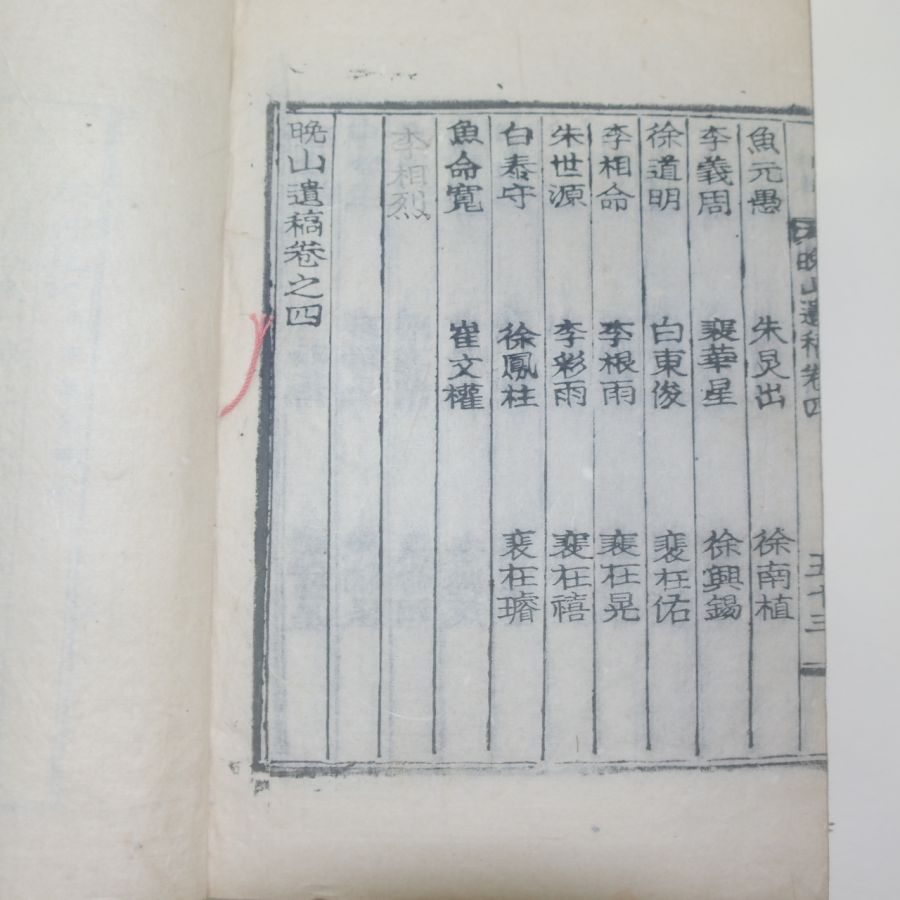 晩山遺稿卷四
五十三
魚元愚 朱炅出 徐南植
李義周 裵華星 徐興錫
徐道明 白東俊 裵在佑
李相命 李根雨 裵在晃
朱世源 李彩雨 裵在禧
白泰守 徐鳳柱 裵在璿
魚命寬 崔文權
李相烈
晩山遺稿卷之四